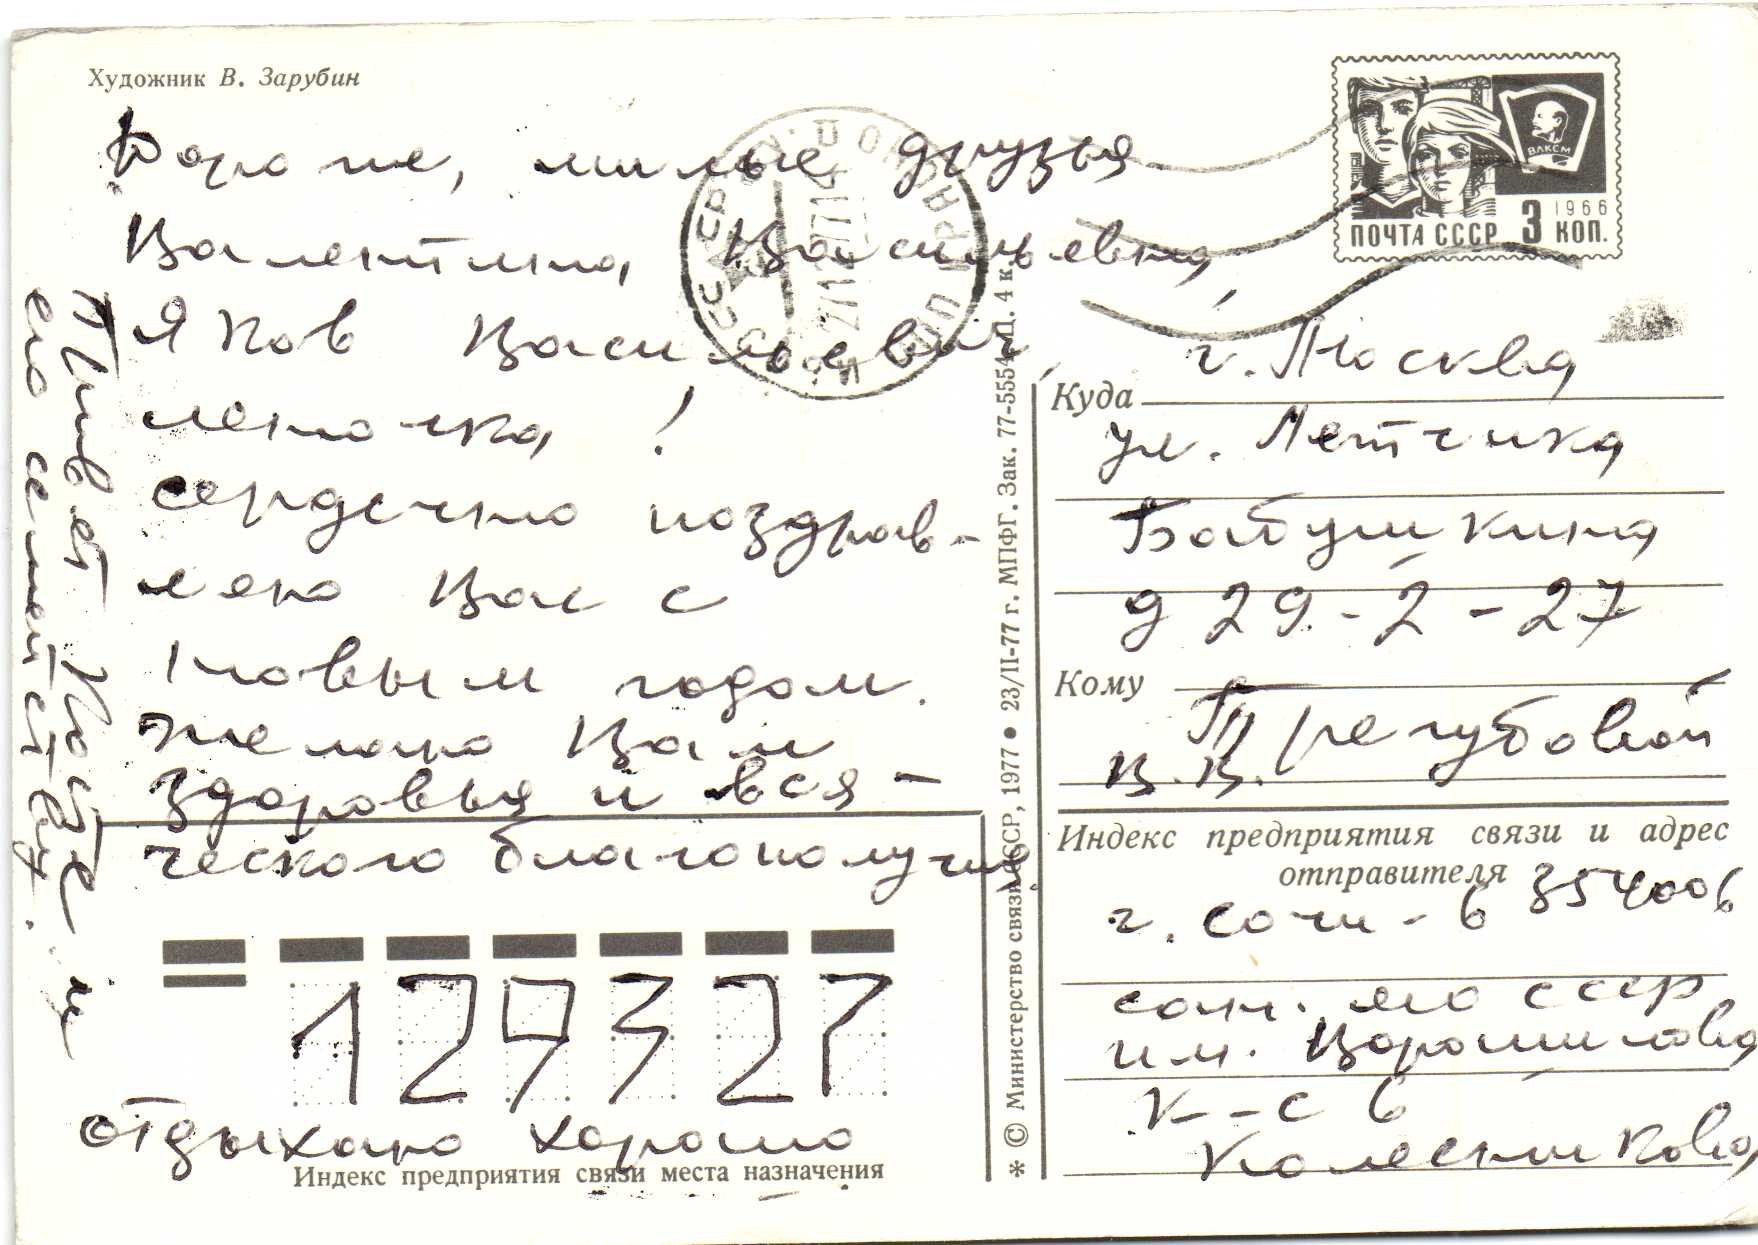 Художник В. Зарубин
Дорогие, милые друзья
Валентина Васильевна,
Яков Васильевич,
Леночка!
сердечно поздрав-
ляю Вас с
Новым годом.
Желаю Вам
здоровья и вся-
ческого благополучия
отдыхаю хорошо
Привет Косте и
его семейству.
129327
Индекс предприятия связи места назначения
* © Министерство связи СССР, 1977 ● 23/II-77 г. МПФГ. Зак. 77-5554. Ц. 4 к.
ВЛКСМ
1966
ПОЧТА СССР 3 КОП.
Куда г. Москва
ул. Летчика
Бабушкина
д 29-2-27
Кому Трегубовой
В.В.
Индекс предприятия связи и адрес
отправителя
354006
г. Сочи-6
сан. М О СССР
им. Ворошилова
К--с 6
Колесникова